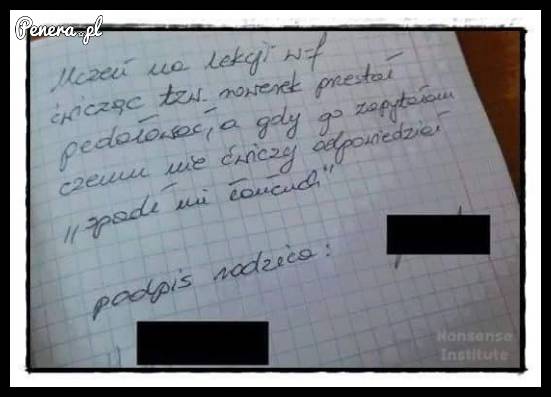 Penera.pl
Uczeń na lekcji w-f
ćwicząc tzw. rowerek przestał
pedałować, a gdy go zapytałam
czemu nie ćwiczy odpowiedział
"spadł mi łańcuch"
podpis rodzica:
Nonsense
Institute